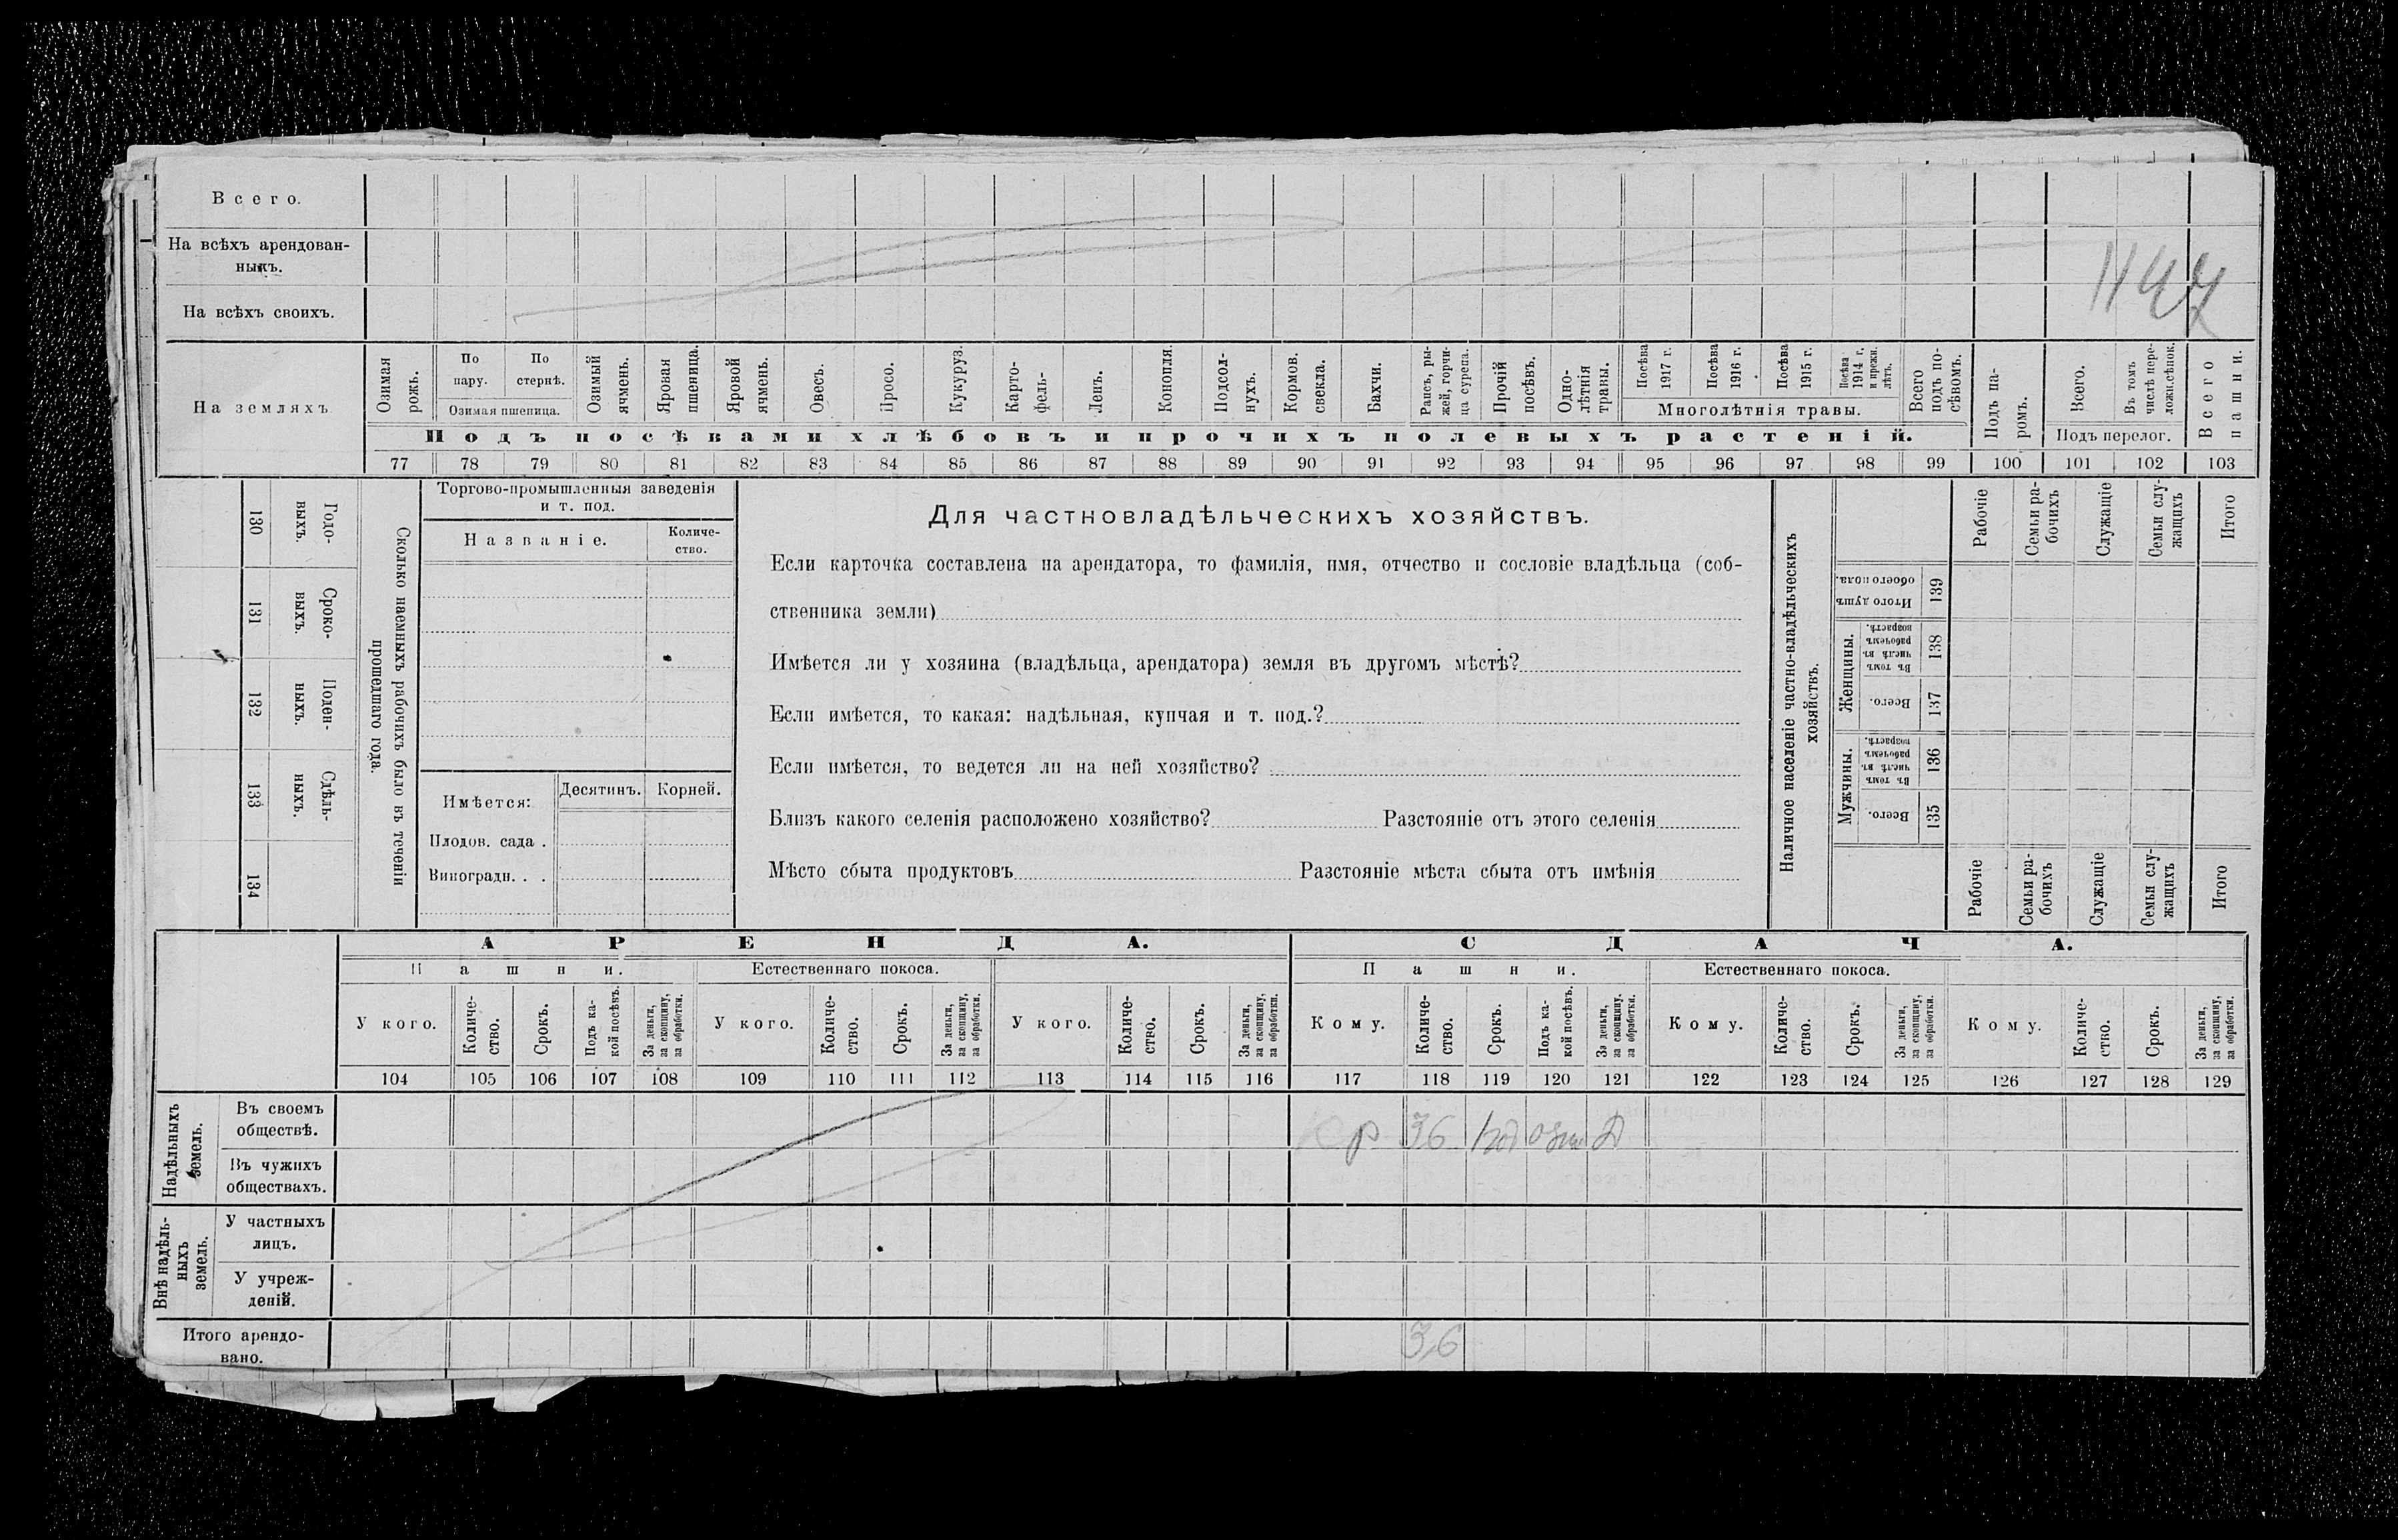 Всего.
На всѣхъ арендован-
ныхъ.
1147
На всѣхъ своихъ.
На земляхъ
Озимая рожь.
По пару.
По стернѣ.
Озимая пшеница.
Озимый ячмень.
Яровая пшеница.
Яровой ячмень.
Овесъ.
Просо.
Кукуруз.
Карто-
фель-
Ленъ.
Конопля
Подсол-
нухъ.
Кормов. свекла.
Бахчи.
Рапсъ, ры-
жей, горчи-
ца сурепа.
Прочій посѣвъ.
Одно-
лѣтнія травы.
Посѣва 1917 г.
Посѣва 1916 г.
Посѣва 1915 г.
Посѣва 1914 г. и прежн. лѣтъ.
Многолѣтнія травы.
Всего подъ по-
сѣвомъ.
Подъ посѣвами хлѣбовъ и прочихъ полевыхъ растеній.
Подъ па-
ромъ.
Всего.
Въ томъ числѣ пере-
ложн.сѣнок.
Подъ перелог.
Всего пашни.
77 78 79 80 81 82 83 84 85 86 87 88 89 90 91 92 93 94 95 96 97 98 99 100 101 102 103
Годо-
выхъ.
130
Сроко-
выхъ.
131
Поден-
ныхъ.
132
Сдѣль-
ныхъ.
133
134
Сколько наемныхъ рабочихъ было въ теченіи
прошедшаго года.
Торгово-промышленныя заведенія
и т. под.
Названіе.
Количе-
ство.
Имѣется:
Десятинъ.
Корней.
Плодов. сада .
Виноградн. . .
Для частновладѣльческихъ хозяйствъ.
Если карточка составлена на арендатора, то фамилія, имя, отчество и сословіе владѣльца (соб-
ственника земли)
Имѣется ли у хозяина (владѣльца, арендатора) земля въ другомъ мѣстѣ?
Если имѣется, то какая: надѣльная, купчая и т. под.?
Если имѣется, то ведется ли на ней хозяйство?
Близъ какого селенія расположено хозяйство? Разстояніе отъ этого селенія
Мѣсто сбыта продуктовъ Разстояніе мѣста сбыта отъ имѣнія
Наличное населеніе частно-владѣльческихъ
хозяйствъ.
Рабочіе
Семьи ра-
бочихъ
Служащіе
Семьи слу-
жащихъ
Итого
Итого душъ
обоего пола.
139
Женщины.
Въ томъ числѣ въ рабочемъ возрастѣ.
138
Всего.
137
Мужчины.
Въ томъ числѣ въ рабочемъ возрастѣ.
136
Всего.
135
Рабочіе
Семьи ра-
бочихъ
Служащіе
Семьи слу-
жащихъ
Итого
АРЕНДА.
СДАЧА.
Пашни.
Естественнаго покоса.
Пашни.
Естественнаго покоса.
У кого.
Количе-
ство.
Срокъ.
Подъ ка-
кой посѣвъ.
За деньги, за скопщину, за обработки.
У кого.
Количе-
ство.
Срокъ.
За деньги, за скопщину, за обработки.
У кого.
Количе-
ство.
Срокъ.
За деньги, за скопщину, за обработки.
Кому.
Количе-
ство.
Срокъ.
Подъ ка-
кой посѣвъ.
За деньги, за скопщину, за обработки.
Кому.
Количе-
ство.
Срокъ.
За деньги, за скопщину, за обработки.
Кому.
Количе-
ство.
Срокъ.
За деньги, за скопщину, за обработки.
104 105 106 107 108 109 110 111 112 113 114 115 116 117 118 119 120 121 122 123 124 125 126 127 128 129
Надѣльныхъ
земель.
Въ своемъ
обществѣ.
36 1год
Въ чужихъ
обществахъ.
Внѣ надѣль-
ныхъ
земель.
У частныхъ
лицъ.
У учреж-
деній.
Итого арендо-
вано.
3,6